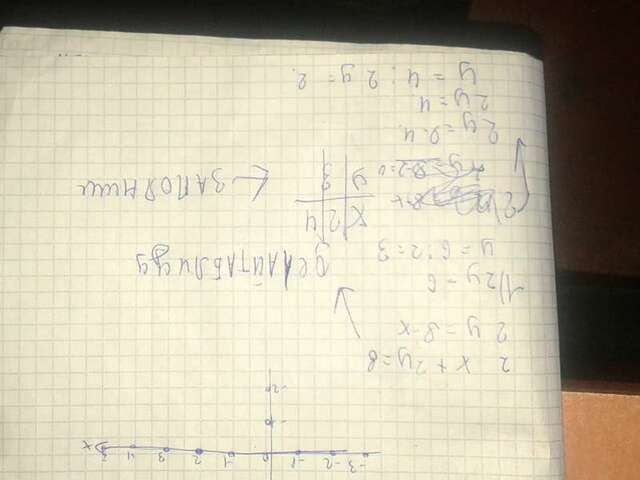 -3 -2 -1 0 1 2 3 4 5 x
-1
-2
2 x + 2y = 8
2y = 8-x
1) 2y = 6
y = 6:2 = 3
ДЕЛАЙ ТАБЛИЦУ
x 2 4
y 3
ЗАПОЛНИШ
2)
2y = 8-4
2y = 4
y = 4:2 y = 2